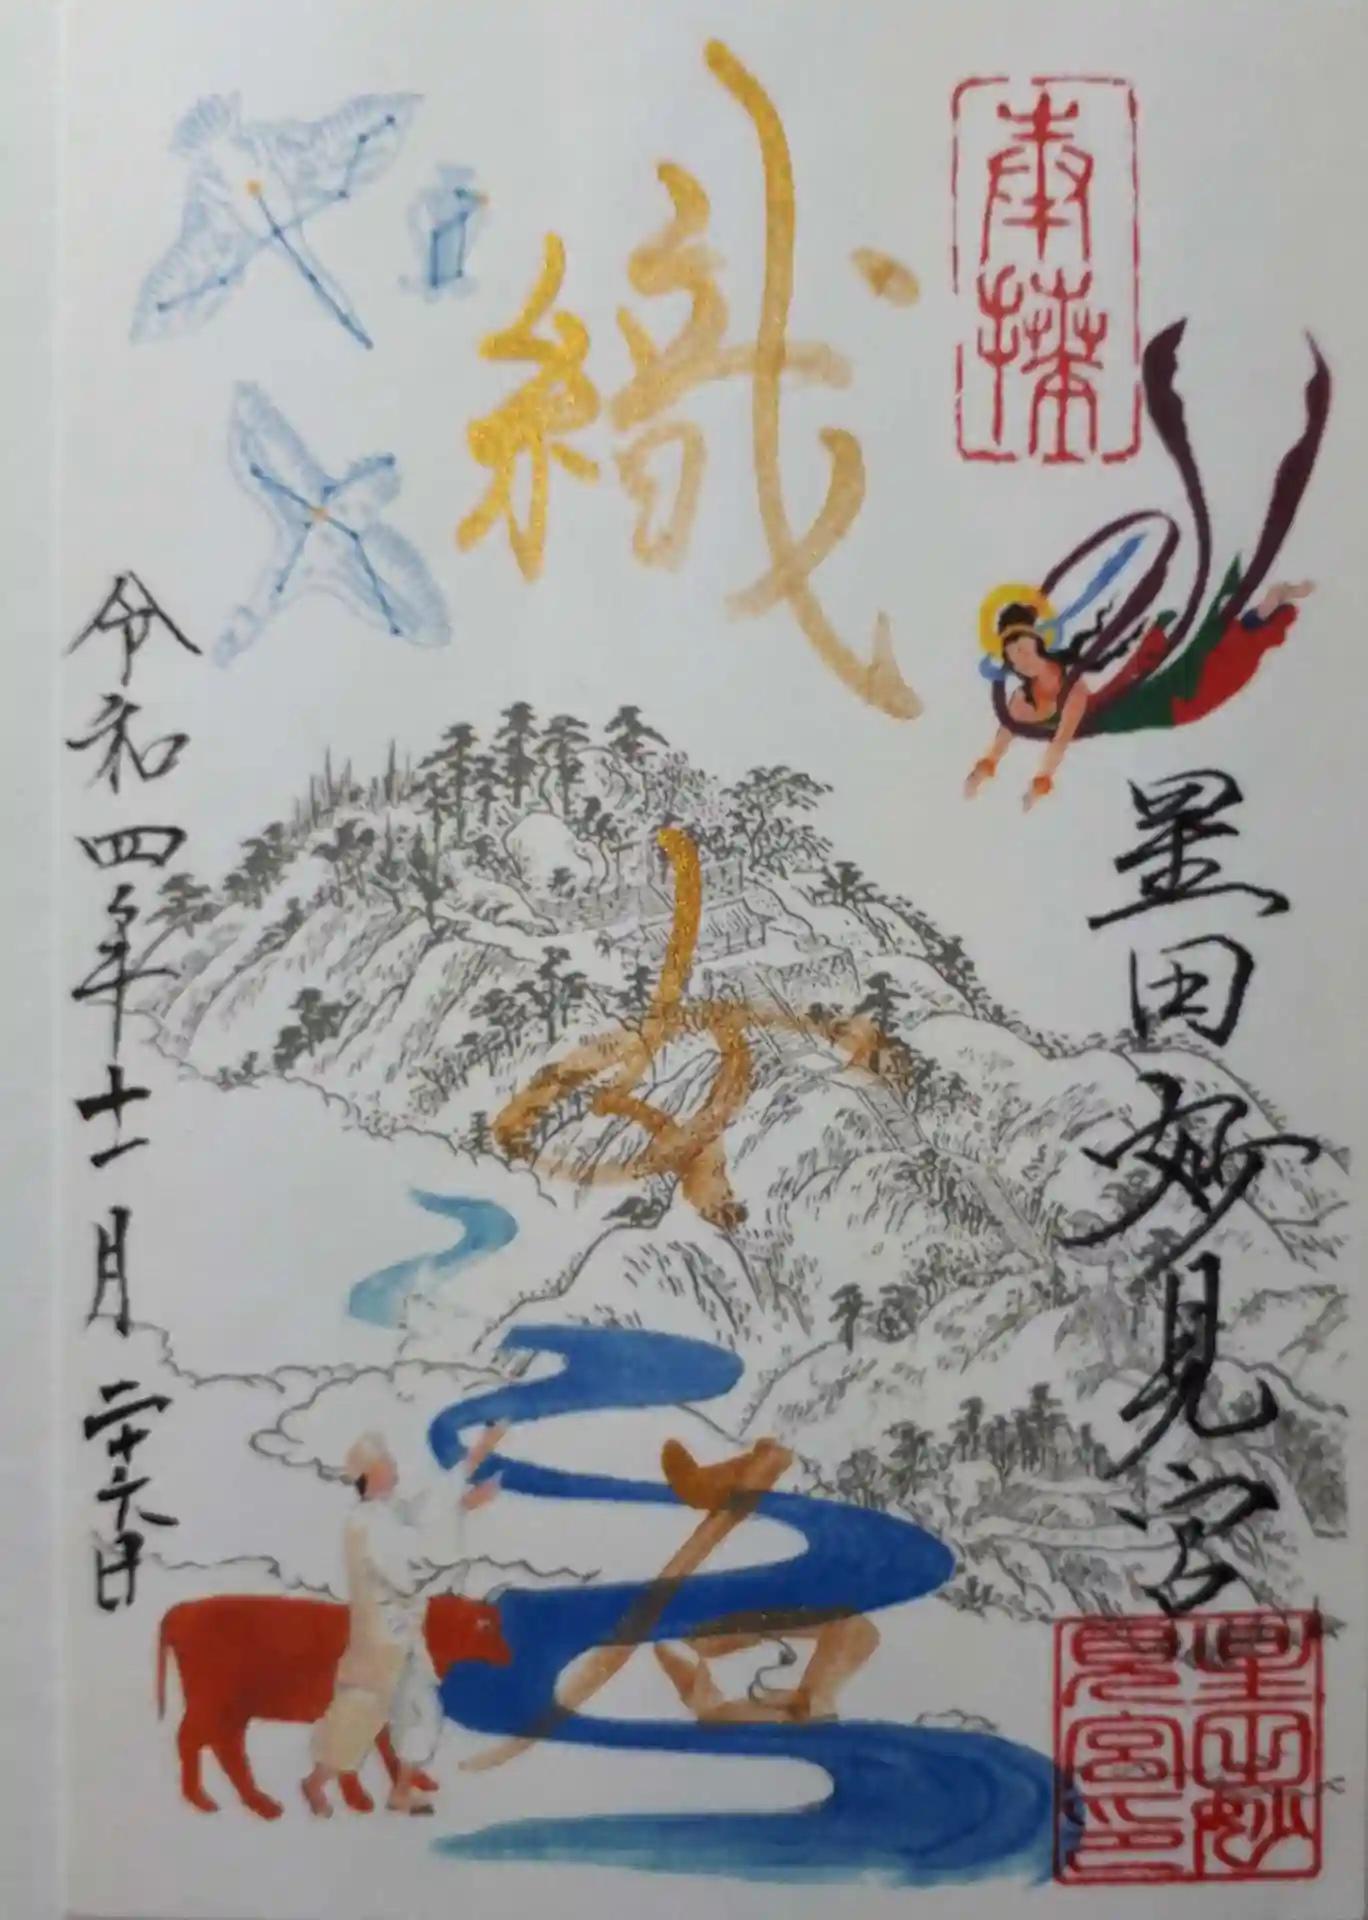 奉拝
星田妙見宮
星田妙見宮印
織女石
令和四年十一月二十六日